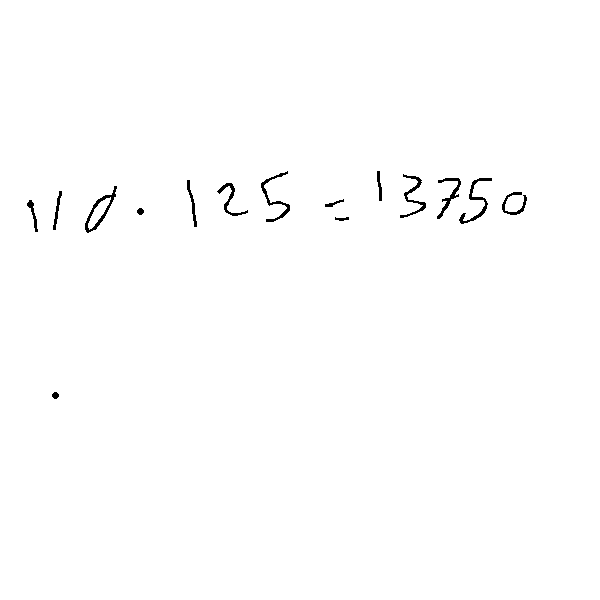 110 · 125 = 13750